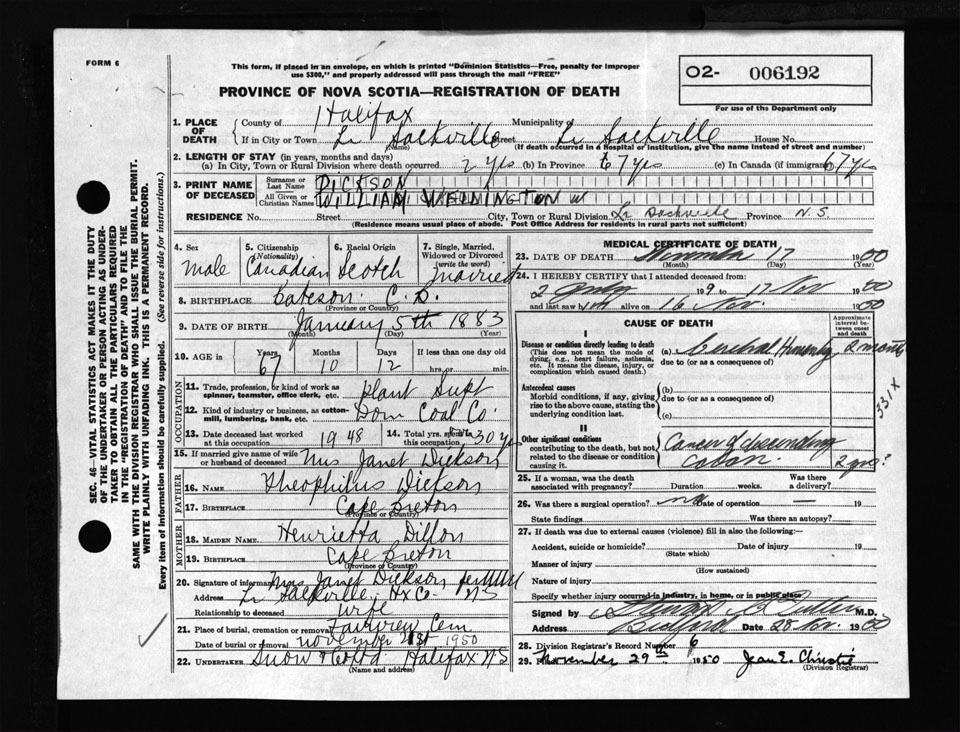 FORM 6
This form, if placed in an envelope, on which is printed "Dominion Statistics—Free, penalty for improper
use $300," and properly addressed will pass through the mail "FREE"
O2- 006192
For use of the Department only
PROVINCE OF NOVA SCOTIA—REGISTRATION OF DEATH
1. PLACE OF DEATH
County of Halifax Municipality of
If in City or Town Lr Sackville Street Lr Sackville House No.
(Name) (If death occurred in a Hospital or institution, give the name instead of street and number)
2. LENGTH OF STAY (in years, months and days)
(a) In City, Town or Rural Division where death occurred 2 yrs (b) In Province 67 yrs (c) In Canada (if immigrant) 67 yrs
3. PRINT NAME OF DECEASED
Surname or Last Name DICKSON
All Given or Christian Names WILLIAM WELMINGTON W
RESIDENCE No. Street City, Town or Rural Division Lr Sackville Province N.S
(Residence means usual place of abode. Post Office Address for residents in rural parts not sufficient)
4. Sex Male
5. Citizenship (Nationality) Canadian
6. Racial Origin Scotch
7. Single, Married, Widowed or Divorced (write the word) Married
8. BIRTHPLACE C.B.
(Province or Country)
9. DATE OF BIRTH January 5th 1883
(Month) (Day) (Year)
10. AGE in Years 67 Months 10 Days 12 If less than one day old hrs. or min.
OCCUPATION
11. Trade, profession, or kind of work as spinner, teamster, office clerk, etc. Plant Supt
12. Kind of industry or business, as cotton-mill, lumbering, bank, etc. Dom Coal Co.
13. Date deceased last worked at this occupation 1948
14. Total yrs. spent in this occupation 30 yrs
15. If married give name of wife or husband of deceased Mrs Janet Dickson
FATHER
16. NAME Theophilus Dickson
17. BIRTHPLACE Cape Breton
(Province or Country)
MOTHER
18. MAIDEN NAME Henrietta Dillon
19. BIRTHPLACE Cape Breton
(Province or Country)
20. Signature of informant Mrs Janet Dickson per
Address Lr Sackville Hx Co. NS
Relationship to deceased Wife
21. Place of burial, cremation or removal Fairview Cem
Date of burial or removal November 21st 1950
22. UNDERTAKER Snow & Co Ltd Halifax N.S
(Name and address)
MEDICAL CERTIFICATE OF DEATH
23. DATE OF DEATH November 17 1950
(Month) (Day) (Year)
24. I HEREBY CERTIFY that I attended deceased from
2 19 to 17 Nov 1950
and last saw him alive on 16 Nov. 1950
CAUSE OF DEATH
Approximate interval between onset and death
I
Disease or condition directly leading to death
(This does not mean the mode of dying, e.g., heart failure, asthenia, etc. It means the disease, injury, or complication which caused death.)
(a) Cerebral Hemorrhage 2 months
due to (or as a consequence of)
Antecedent causes
Morbid conditions, if any, giving rise to the above cause, stating the underlying condition last.
(b)
due to (or as a consequence of)
(c)
331X
II
Other significant conditions contributing to the death, but not related to the disease or condition causing it.
Cancer of descending
Colon. 2 yrs?
25. If a woman, was the death associated with pregnancy? Duration weeks. Was there a delivery?
26. Was there a surgical operation? no Date of operation 19
State findings Was there an autopsy?
27. If death was due to external causes (violence) fill in also the following:—
Accident, suicide or homicide? Date of injury 19
(State which)
Manner of injury
(How sustained)
Nature of injury
Specify whether injury occurred in industry, in home, or in public place
Signed by M.D.
Address Bedford Date 28 Nov. 1950
28. Division Registrar's Record Number 6
29. November 29th 1950 Jean E. Christie
(Division Registrar)
SEC. 46—VITAL STATISTICS ACT MAKES IT THE DUTY
OF THE UNDERTAKER OR PERSON ACTING AS UNDER-
TAKER TO OBTAIN ALL THE PARTICULARS REQUIRED
IN THE "REGISTRATION OF DEATH" AND TO FILE THE
SAME WITH THE DIVISION REGISTRAR WHO SHALL ISSUE THE BURIAL PERMIT.
WRITE PLAINLY WITH UNFADING INK. THIS IS A PERMANENT RECORD.
Every item of information should be carefully supplied. (See reverse side for instructions.)